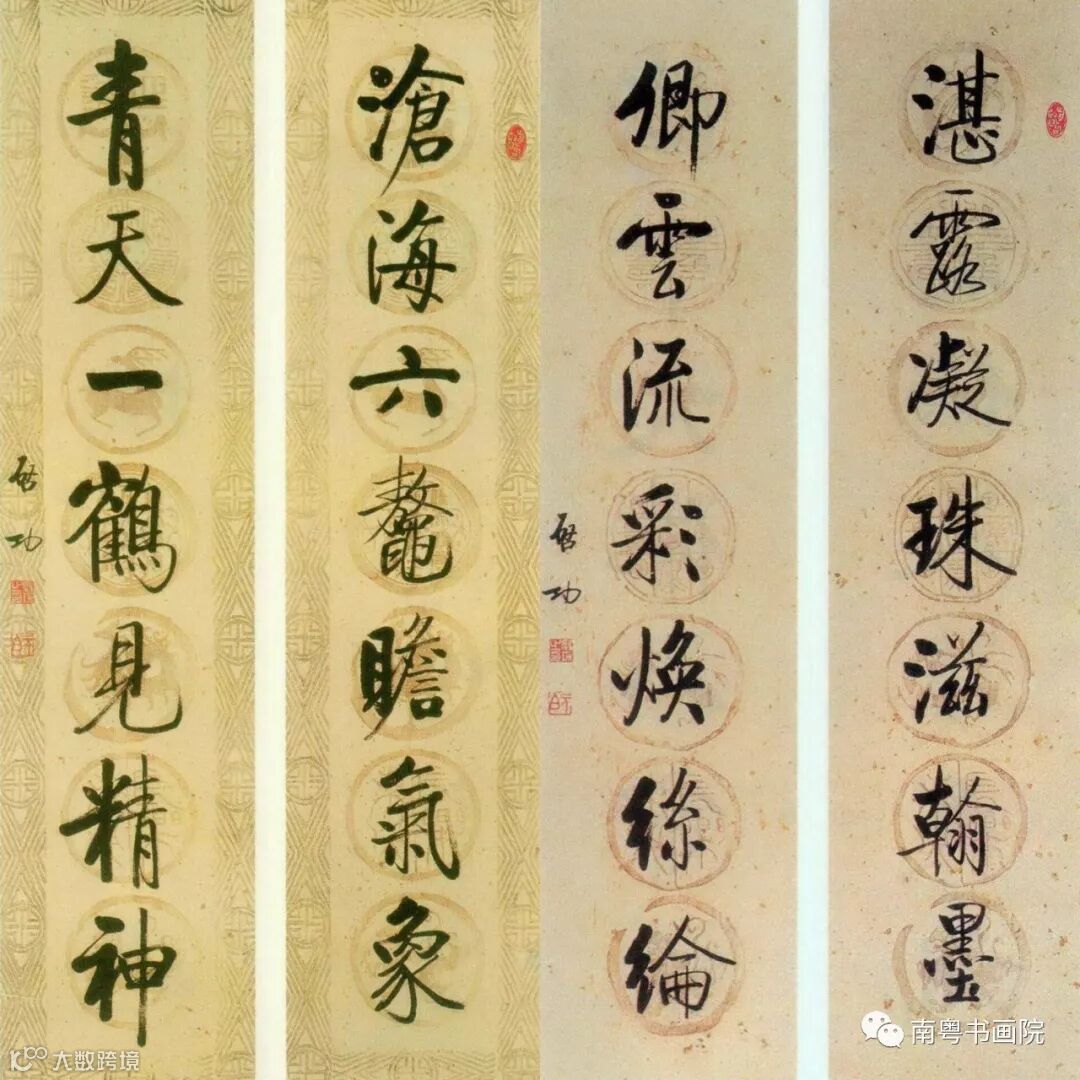 湛露凝珠滋翰墨
卿雲流彩煥絲綸
啓功
滄海六鼇瞻氣象
青天一鶴見精神
啓功
南粤书画院
大数跨境